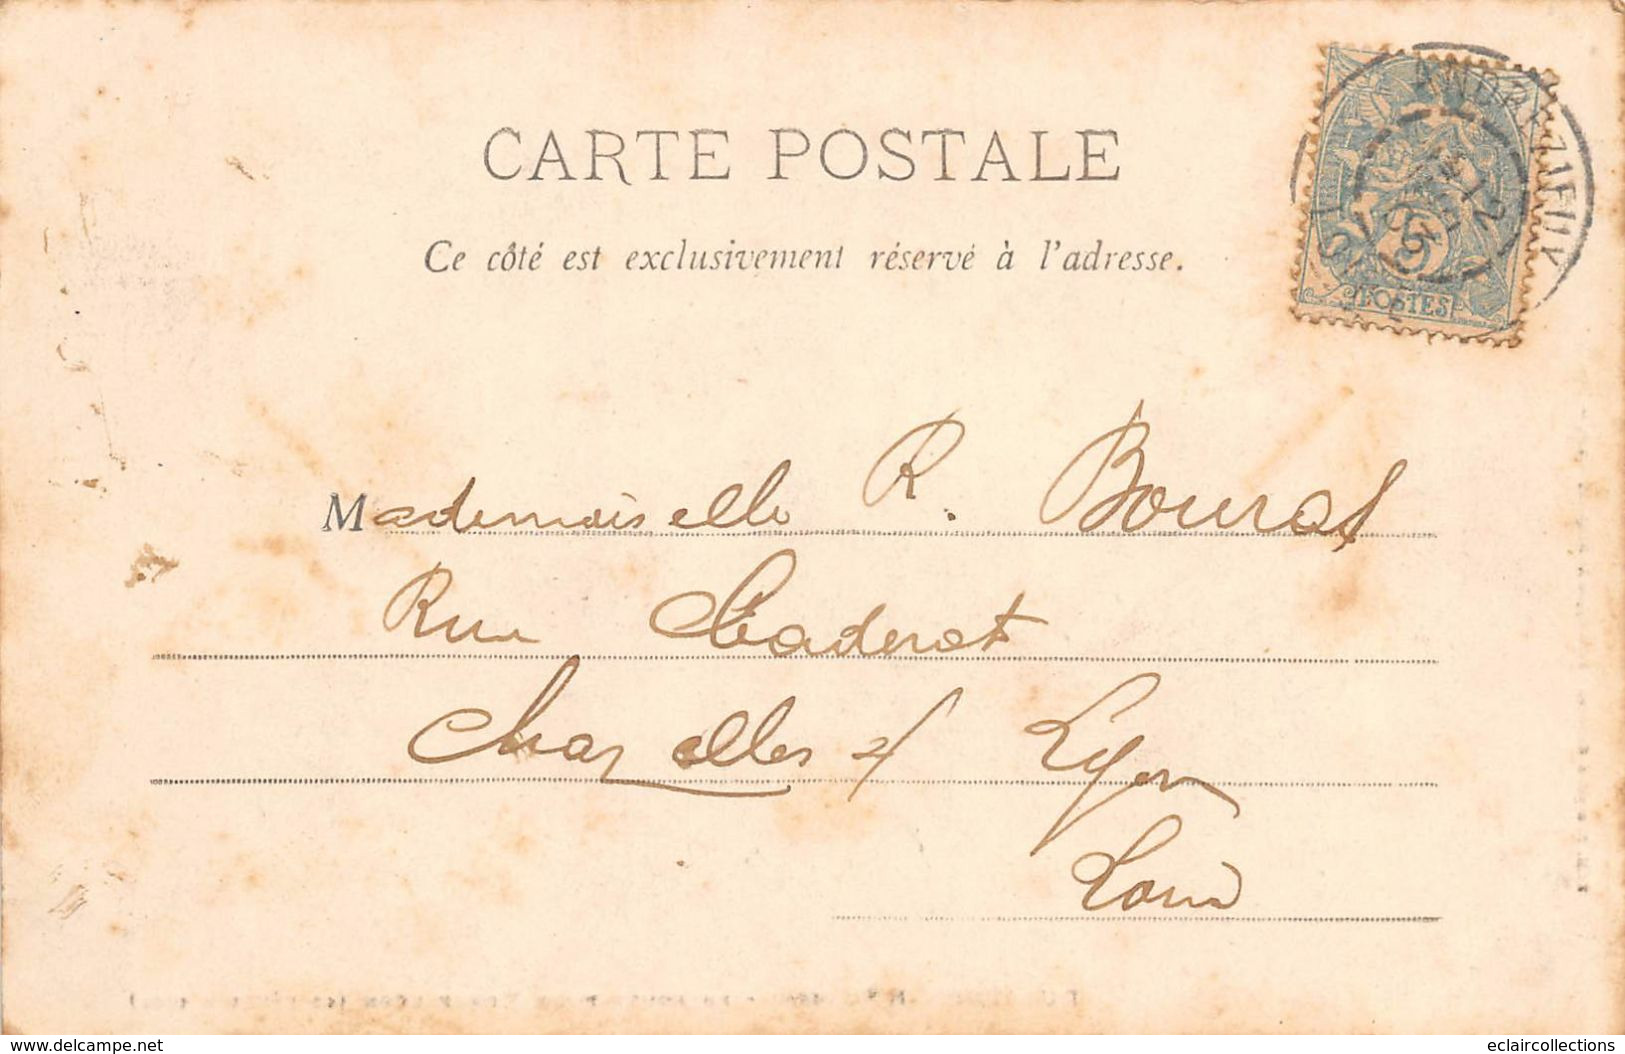 CARTE POSTALE
Ce côté est exclusivement réservé à l'adresse.
ANDRÉZIEUX
5
POSTES
Mademoiselle R. Bourat
Rue
Chazelles s/ Lyon
Loire
www.delcampe.net
eclaircollections